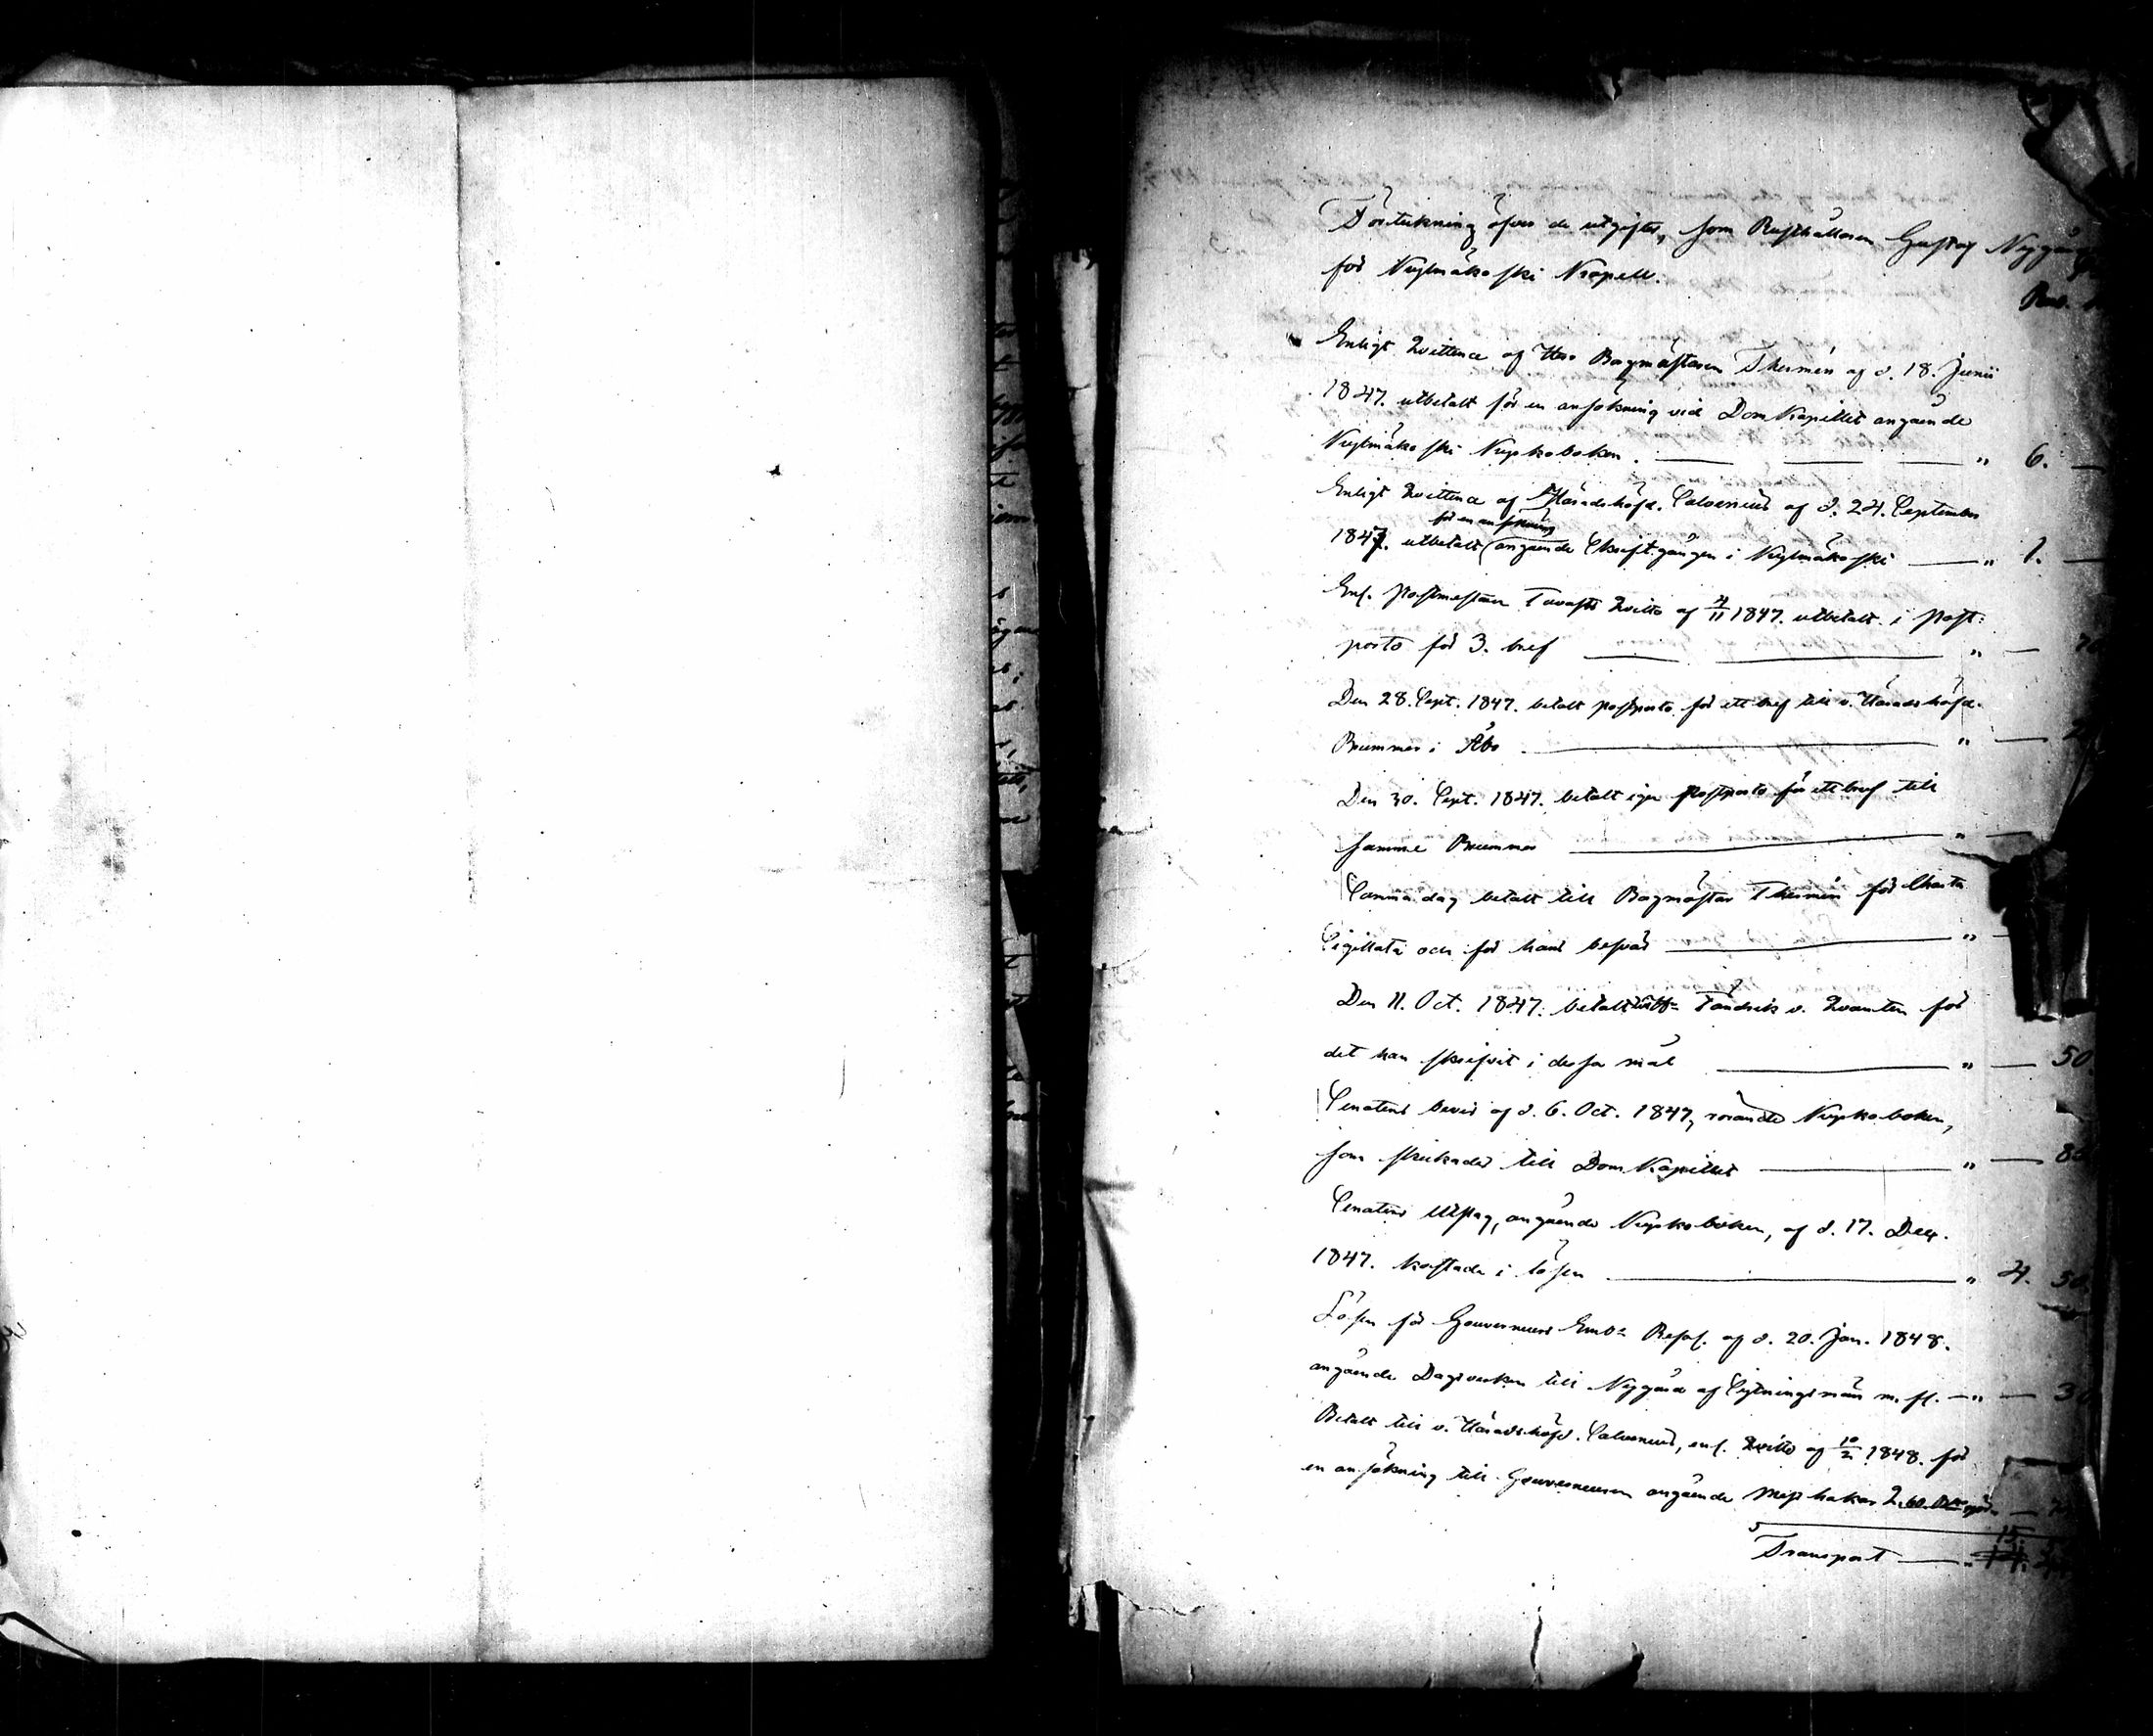 Förteckning öfver de utgifter, som Rusthållaren Gustaf Nygård
för Kylmäkoski Kapell.
Enligt Qvittence af Herr Bagmästaren Thermén af d. 18. Junii
1847. utbetalt för en ansökning vid DomKapitlet angående
Kylmäkoski Kyrkoboken. — — — " 6. —
Enligt Qvittence af Häradshöfd. Calvenius af d. 24. September
för en ansökning
1847. utbetalt angående Skriftgången i Kylmäkoski — " 1. —
Enl. Postmästare Tavasts Qvitto af 4/11 1847. utbetalt i post-
porto för 3. bref — — " —
Den 28. Sept. 1847. betalt postporto för ett bref till v. Häradshöfd.
Brummer i Åbo — " —
Den 30. Sept. 1847. betalt igen postporto för ett bref till
samme Brummer — " —
Samma dag betalt till Bagmästar Thermén för Charta
Sigillata och för hans besvär — " —
Den 11. Oct. 1847. betalt till Fändrik v. Qvanten för
det han skrifvit i dessa mål — " — 50.
Senatens bevis af d. 6. Oct. 1847, rörande Kyrkoboken,
som skickades till DomKapitlet — " —
Senatens Utslag, angående Kyrkoboken, af d. 17. Dec.
1847. kostade i lösen — " 4. 50.
Lösen för Gouverneurs Emb:s Resol. af d. 20. Jan. 1848.
angående Dagsverken till Nygård af Sytningsmän m. fl. — " — 30
Betalt till v. Häradshöfd. Calvenius, enl. Qvitto af 10/2 1848. för
en ansökning till Gouverneuren angående
Transport — " 15.